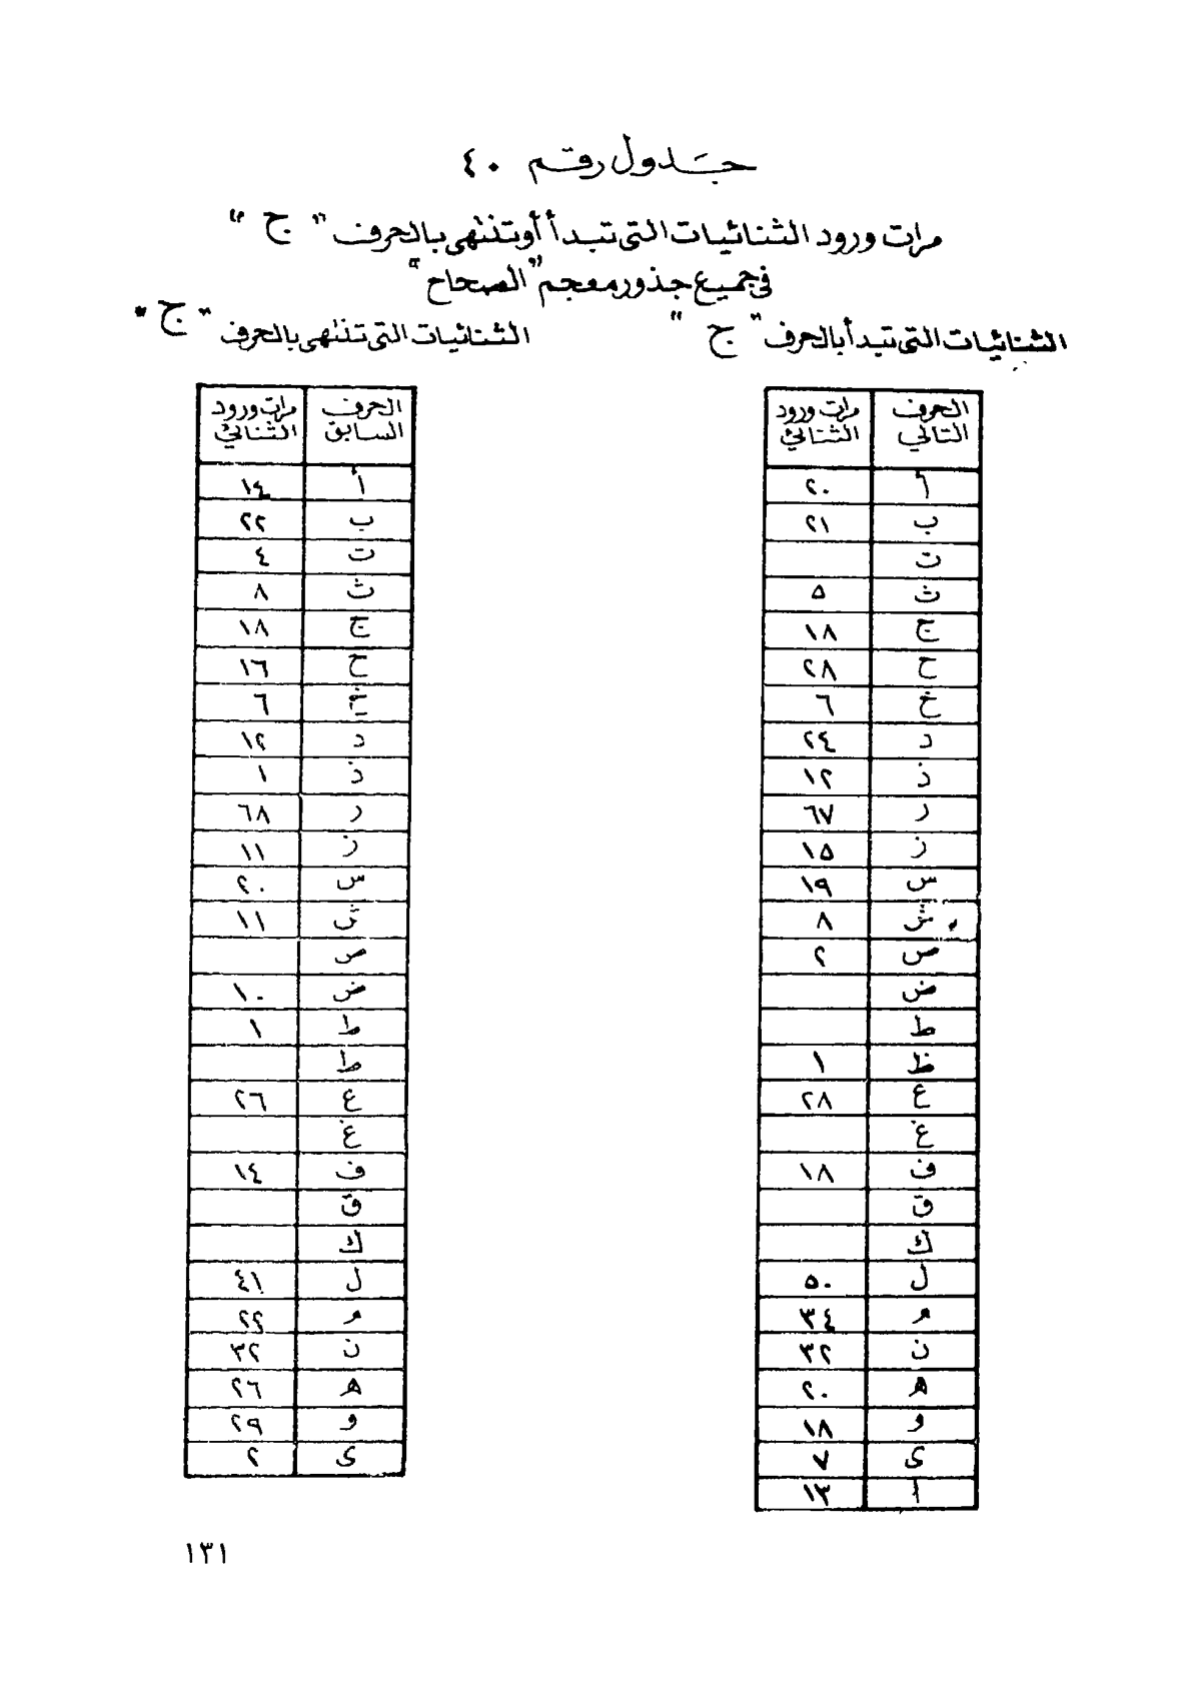 جدول رقم ٤٠
مرات ورود الثنائيات التى تبدأ أو تنتهى بالحرف "ج"
فى جميع جذور معجم "الصحاح"
الثنائيات التى تبدأ بالحرف "ج"
الحرف التالي | مرات ورود الثنائي
أ | ٢٠
ب | ٢١
ت
ث | ٥
ج | ١٨
ح | ٢٨
خ | ٦
د | ٢٤
ذ | ١٢
ر | ٦٧
ز | ١٥
س | ١٩
ش | ٨
ص | ٢
ض
ط
ظ | ١
ع | ٢٨
غ
ف | ١٨
ق
ك
ل | ٥٠
م | ٣٤
ن | ٣٢
ه | ٢٠
و | ١٨
ى | ٧
ا | ١٣
الثنائيات التى تنتهى بالحرف "ج"
الحرف السابق | مرات ورود الثنائي
أ | ١٤
ب | ٢٢
ت | ٤
ث | ٨
ج | ١٨
ح | ١٦
خ | ٦
د | ١٢
ذ | ١
ر | ٦٨
ز | ١١
س | ٢٠
ش | ١١
ص
ض | ١٠
ط | ١
ط
ع | ٢٦
غ
ف | ١٤
ق
ك
ل | ٤١
م | ٢٢
ن | ٣٢
ه | ٢٦
و | ٢٩
ى | ٢
١٣١